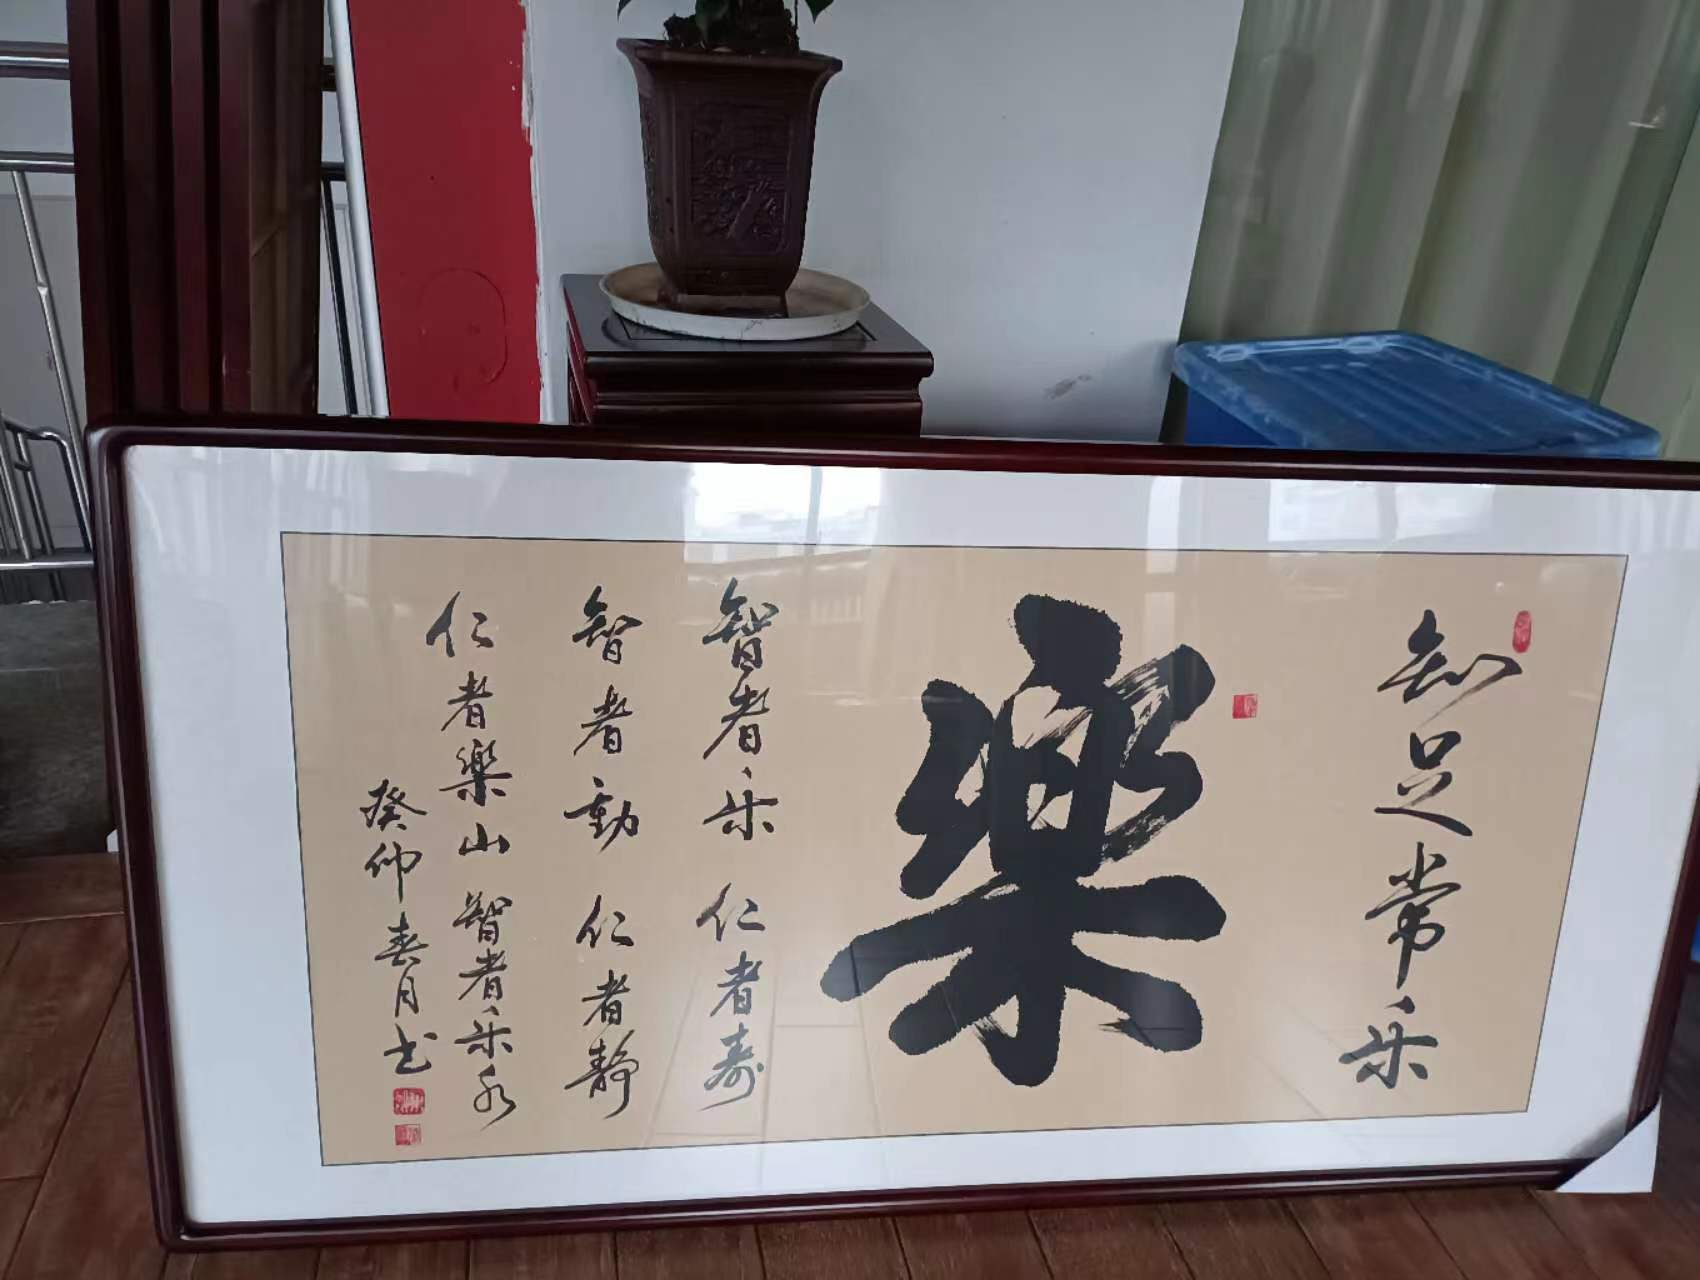 知足常乐
樂
智者乐 仁者寿
智者動 仁者静
仁者樂山 智者乐水
癸卯春月书